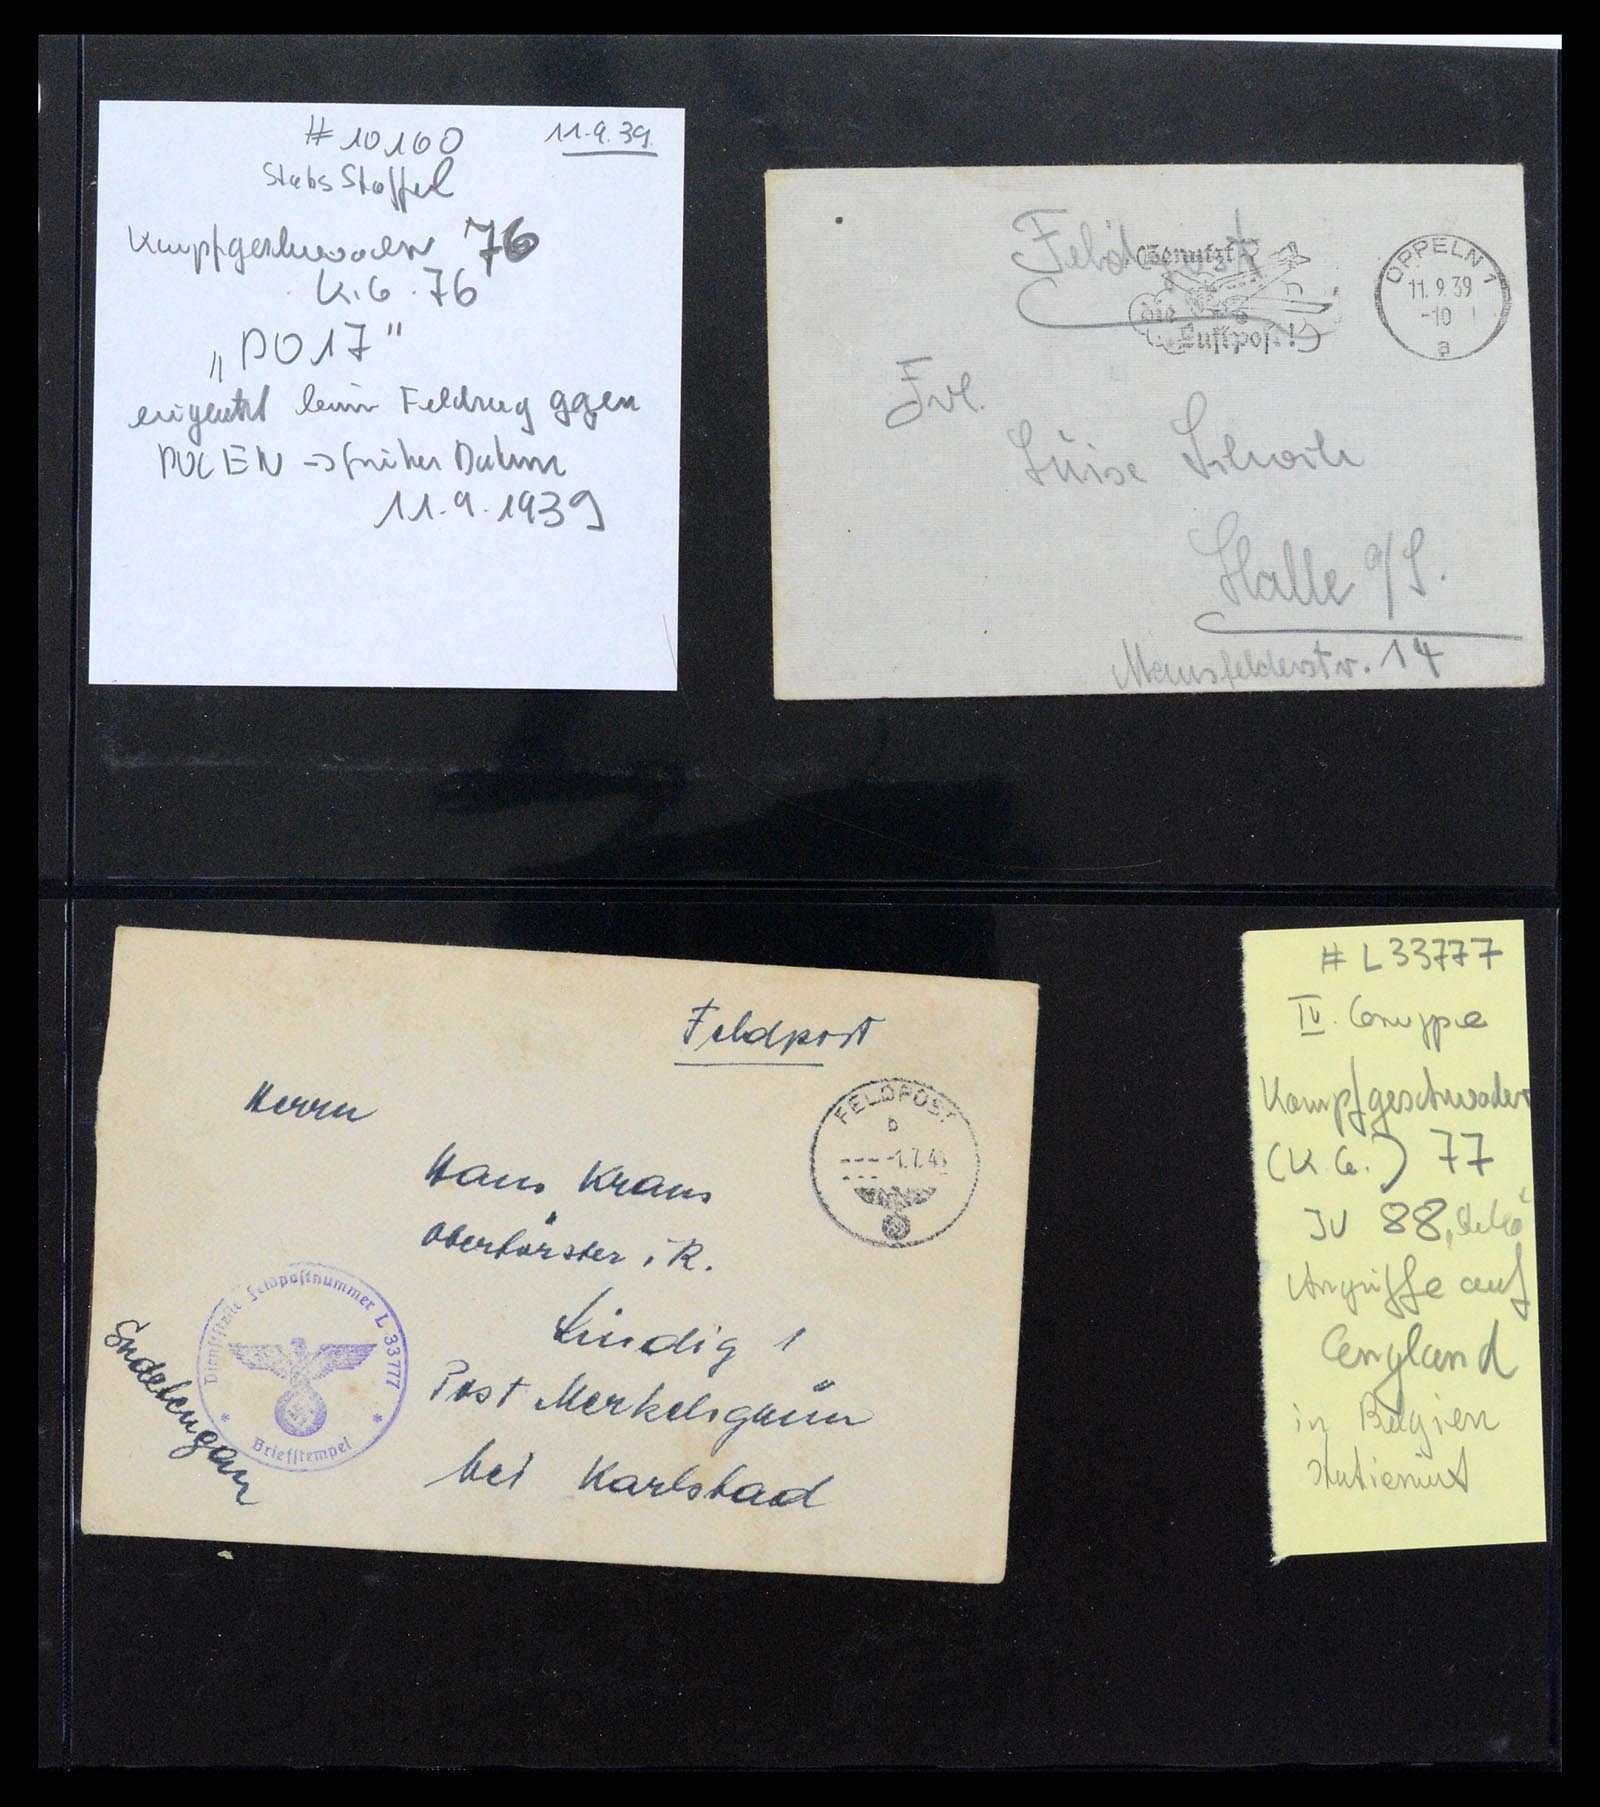 # 10160 11.9.39.
Stabs Staffel
Kampfgeschwader 76
K.G. 76
„DO 17"
eingesetzt beim Feldzug gegen
POLEN → früher Datum
11.9.1939
Feldpost
Benutzt
die
Luftpost!
OPPELN 1
11.9.39
-10
a
Frl.
Luise
Halle a/S.
Mansfelderstr. 14
Feldpost
FELDPOST
b
--- -1.7.4
---
Herrn
Hans Kraus
Oberförster i. R.
Lindig 1
Post Merkelsgrün
bei Karlsbad
Sudetengau
Dienststelle Feldpostnummer L 33777
* Briefstempel *
# L 33777
IV. Gruppe
Kampfgeschwader
(K.G.) 77
JU 88,
Angriffe auf
England
in Belgien
stationiert